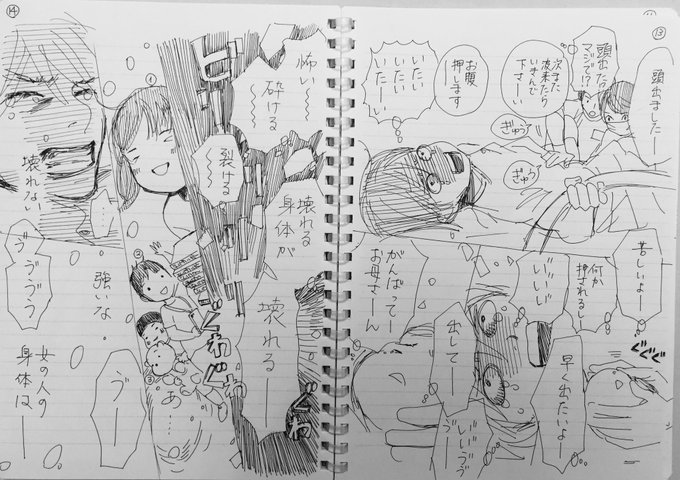 ⑬
頭出ましたー
頭出た？
次また
波来たら
いきんで
下さーい
お腹
押します
いたい
いたい
いたーい
ぎゅっ
ぎゅっ
苦しいよー
何か
押されるしー
いいい
がんばってー
お母さーん
ググ
早く出たいよー
出してー
いいゔゔー
⑭
怖いー
砕ける
裂ける
壊れる
身体が
壊れるー
ぐわ
ぐわぐわ
あ…
壊れない
…
強いな
ゔゔゔゔ
ゔーー
女の人の
身体はー